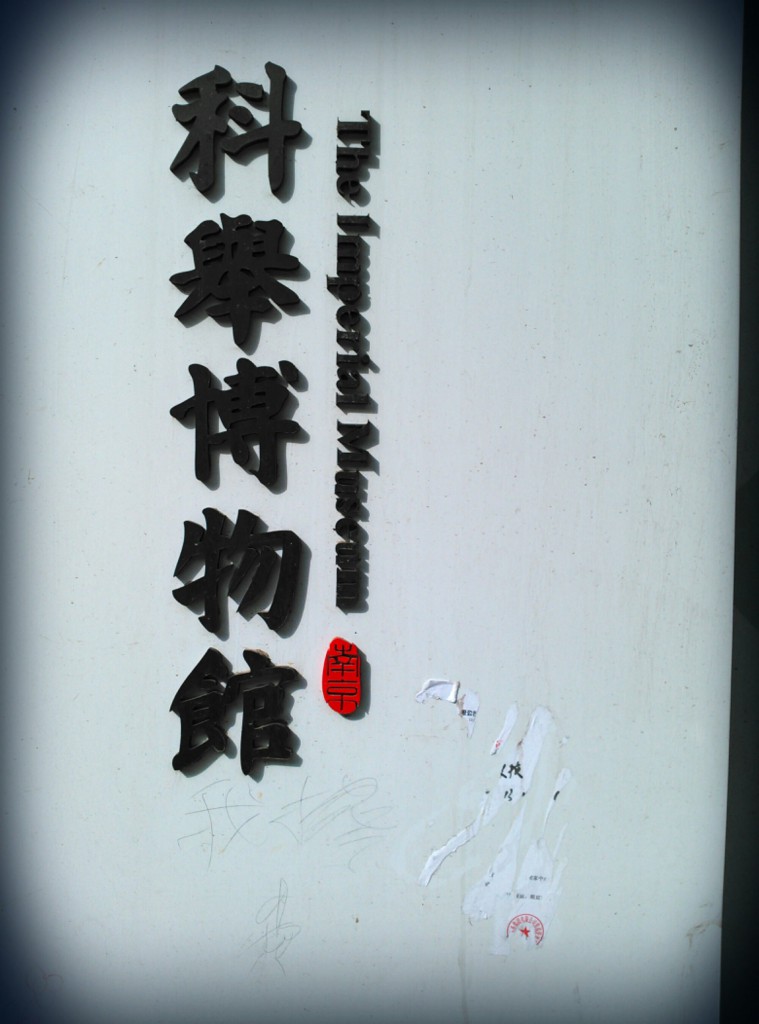 科舉博物館
The Imperial Museum
南京